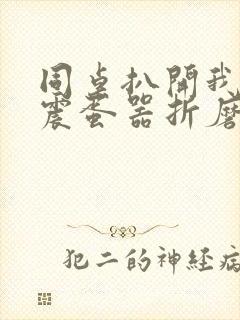 同桌扒開我
震蛋器折磨
犯二的神経病